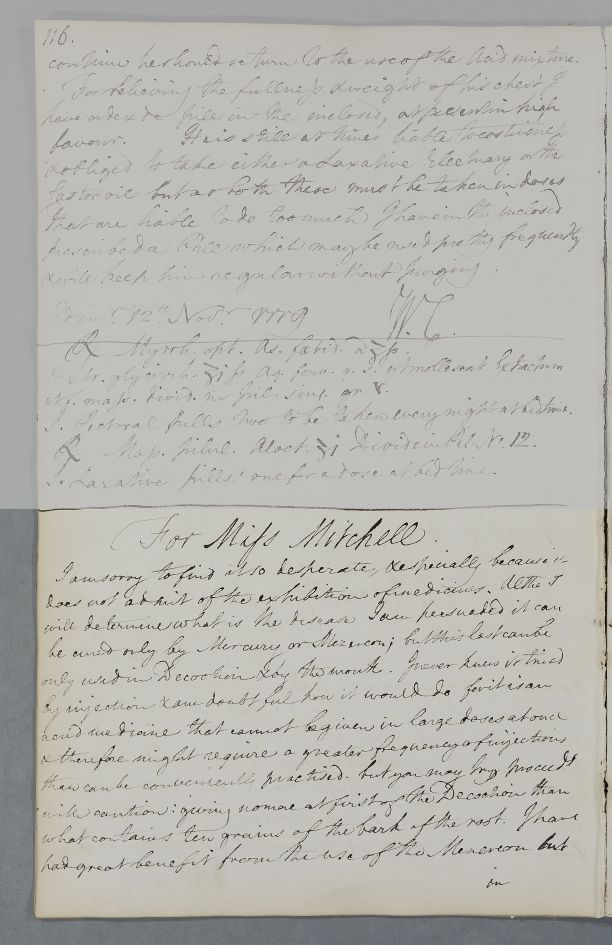 116.
continue he should return to the use of the Acid mixture.
For relieving the fullness & weight of his chest I
have ordered a pill in the inclosed, at present in high
favour. He is still at times liable to costiveness
& obliged to take either a Laxative Electuary or the
Castor oil but as both these must be taken in doses
that are liable to do too much I have in the inclosed
prescribed a Pill which may be used pretty frequently
& will keep him regular without purging.
Edinr. 12th Novr. 1779 W.C.
℞ Myrrh. opt. As. fœtid. a ʒſs.
Extr. glycirrh. ʒiſs Aq. ferv. q. s. ut mollescat Extractum
ut f. mass. divid. in pil. sing. gr. v.
S. Pectoral pills two to be taken every night at bedtime.
℞ Mass. pilul. Aloet. ʒi Divide in Pil. No. 12.
S. Laxative pills: one for a dose at bed time.
For Miss Mitchell.
I am sorry to find it so desperate, & especially because it
does not admit of the exhibition of medicines. Altho I
will determine what is the disease I am persuaded it can
be cured only by Mercury or Mezereon; but this last can be
only used in Decoction & by the mouth. I never knew it tried
by injection & am doubtful how it would do for it is an
acrid medicine that cannot be given in large doses at once
& therefore might require a greater frequency of injections
than can be conveniently practised. but you may try proceed
with caution: giving no more at first of the Decoction than
what contains ten grains of the bark of the root. I have
had great benefit from the use of the Mezereon but
in